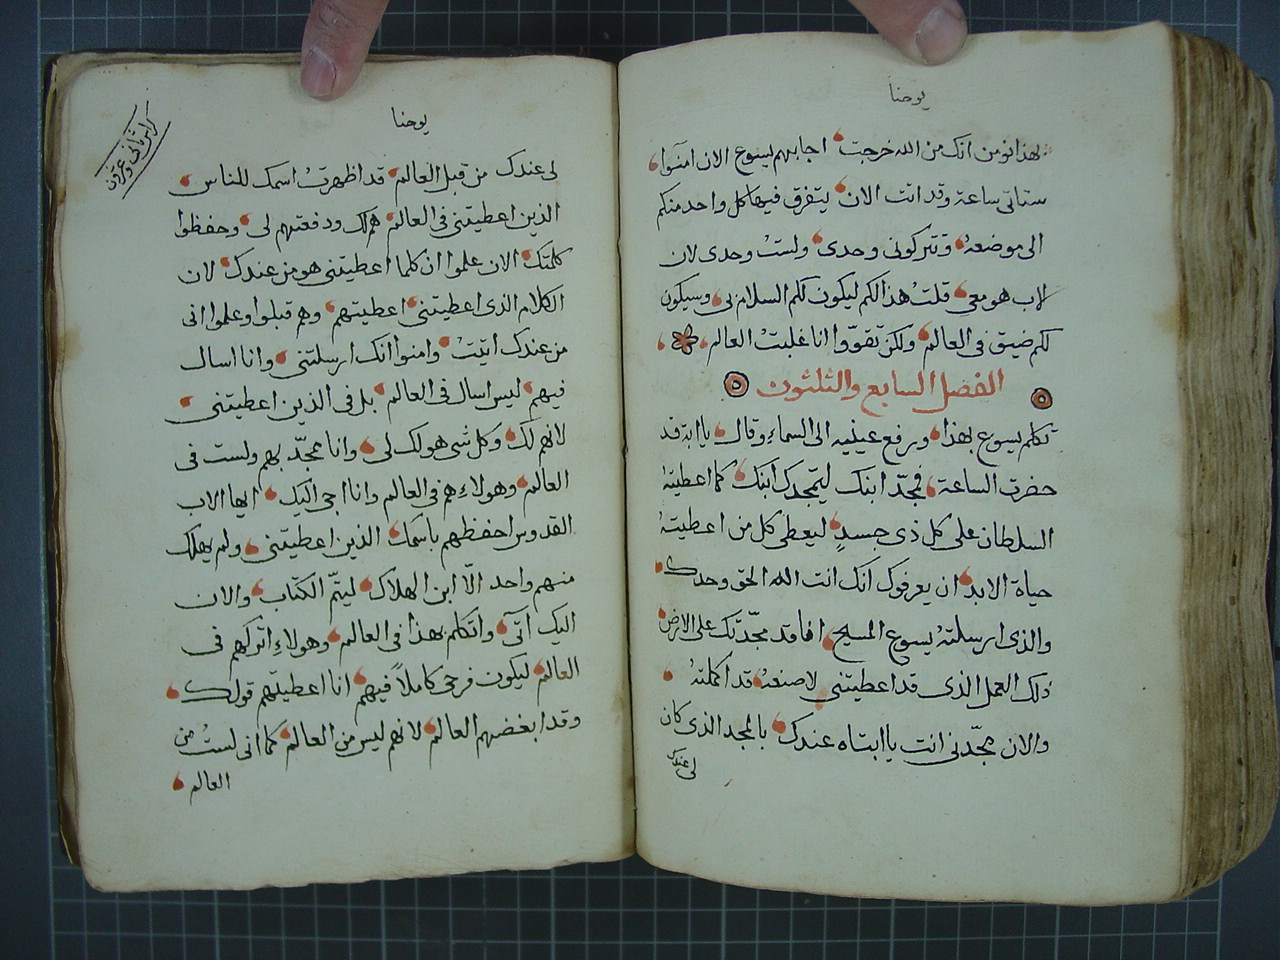 يوحنا
بهذا نومن انك من الله خرجت اجابهم يسوع الان امنوا
ستاتى ساعة وقد اتت الان يتفرق فيها كل واحد منكم
الى موضعه وتتركونى وحدى ولست وحدى لان
لاب هو معى قلت هذا لكم ليكون لكم السلام بى وسيكون
لكم ضيق فى العالم ولكن تقووا انا غلبت العالم
الفصل السابع والثلثون
تكلم يسوع بهذا ورفع عينيه الى السماء وقال يا ابة قد
حضرت الساعة فمجّد ابنك ليمجدك ابنك كما اعطيته
السلطان على كل ذى جسدٍ ليعطى كل من اعطيته
حياة الابد ان يعرفوك انك انت اله الحق وحدك
والذى ارسلته يسوع المسيح انا قد مجّدتك على الارض
ذلك العمل الذى قد اعطيتنى لاصنعه قد اكملته
والان مجّدنى انت يا ابتاه عندك بالمجد الذى كان
لى عندك
يوحنا
لى عندك من قبل العالم قد اظهرت اسمك للناس
الذين اعطيتنى فى العالم هم لك ودفعتهم لى وحفظوا
كلمتك الان علموا ان كلما اعطيتنى هو من عندك لان
الكلام الذى اعطيتنى اعطيتهم وهم قبلوا وعلموا انى
من عندك اتيت وامنوا انك ارسلتنى وانا اسال
فيهم ليس اسال فى العالم بل فى الذين اعطيتنى
لانهم لك وكل شى هو لك لى وانا ممجّد بهم ولست فى
العالم وهولاء هم فى العالم وانا اجى اليك ايها الاب
القدوس احفظهم باسمك الذين اعطيتنى ولم يهلك
منهم واحد الّا ابن الهلاك ليتمّ الكتاب والان
اليك آتى واتكلم بهذا فى العالم وهولاء اتركهم فى
العالم ليكون فرحى كاملاً فيهم انا اعطيتهم قولك
وقد ابغضهم العالم لانهم ليس من العالم كما انى لست من
العالم